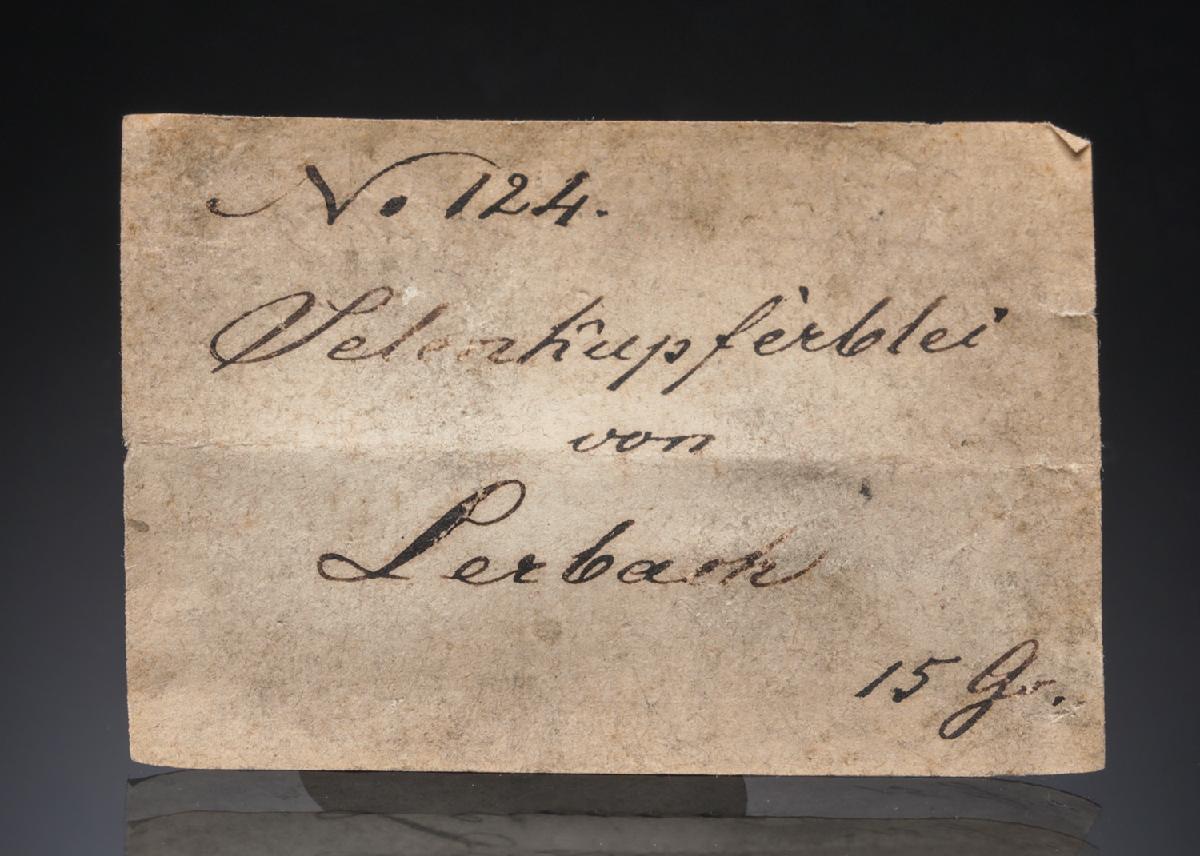 No 124.
Selenkupferblei
von
Lerbach
15 Gr.